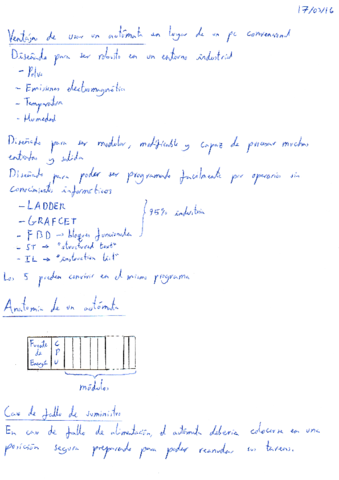 17/02/16
Ventajas de usar un autómata en lugar de un pc convencional
Diseñado para ser robusto en un entorno industrial
- Polvo
- Emisiones electromagnéticas
- Temperatura
- Humedad
Diseñado para ser modular, modificable y capaz de procesar muchas
entradas y salidas
Diseñado para poder ser programado facilmente por operarios sin
conocimientos informáticos
- LADDER
- GRAFCET
- FBD → bloques funcionales
} 95% industria
- ST → "structured text"
- IL → "instruction list"
Los 5 pueden convivir en el mismo programa
Anatomía de un autómata
Fuente
de
Energía
CPU
módulos
Caso de fallo de suministro
En caso de fallo de alimentación, el autómata debería colocarse en una
posición segura preparado para poder reanudar su tarea.